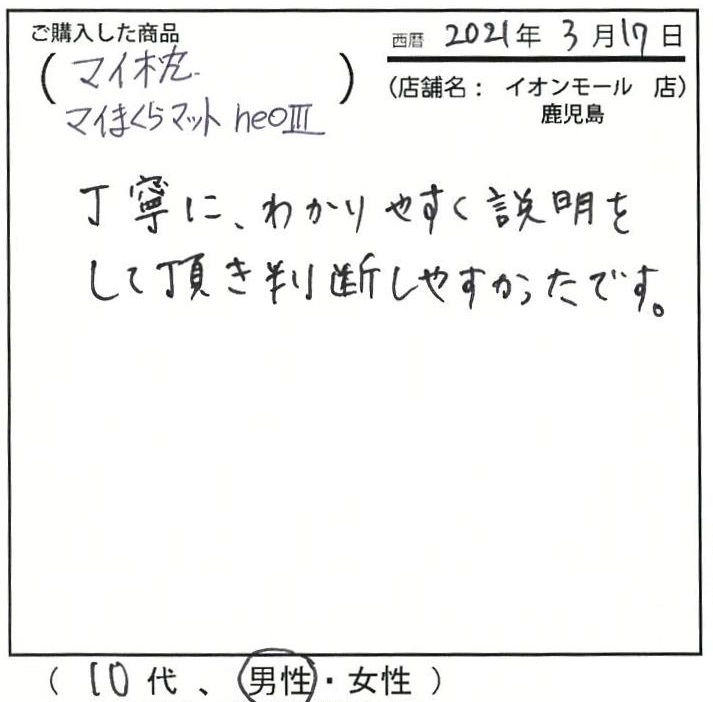 ご購入した商品
西暦 2021年 3月17日
(マイ枕
マイまくらマット neoⅢ)
(店舗名: イオンモール 店)
鹿児島
丁寧に、わかりやすく説明を
して頂き判断しやすかったです。
(10代、男性・女性)